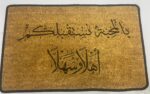 بالمحبة نستقبلكم
أهلا وسهلا